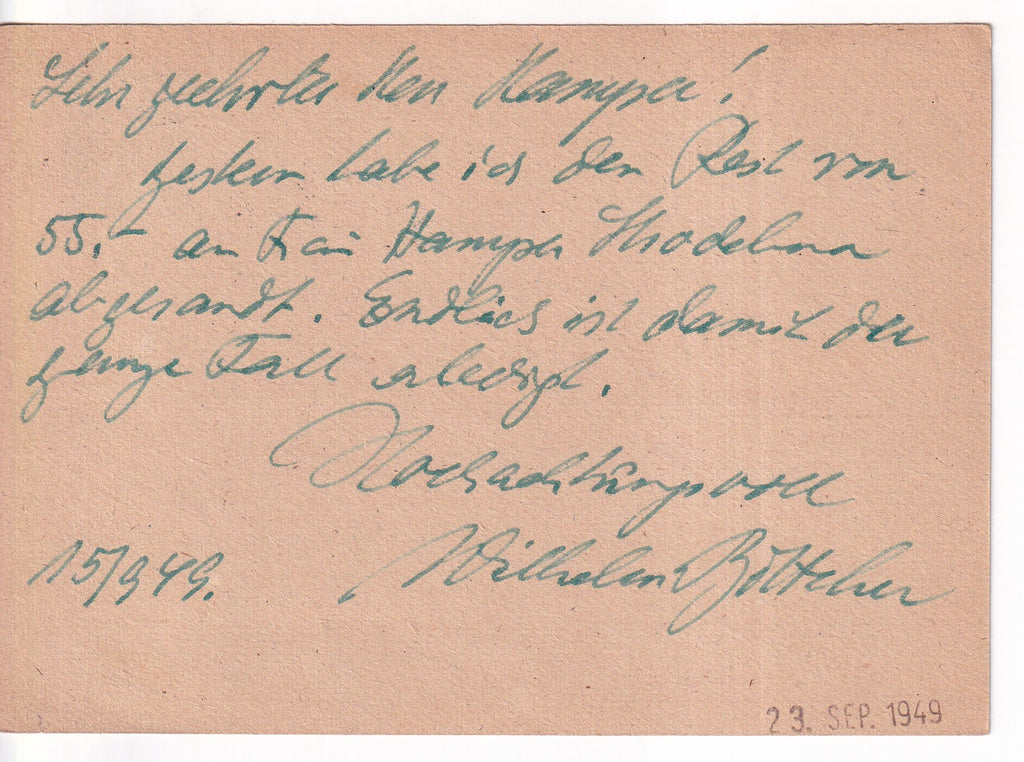 Sehr geehrter Herr Kamper!
Gestern habe ich den Rest von
55.– an Frau Kamper
abgesandt. Endlich ist damit der
ganze Fall erledigt.
Hochachtungsvoll
15/9 49. Wilhelm Böttcher
23. SEP. 1949